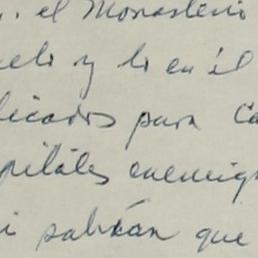 el Monasterio
y lo en él
licados para Ca
pitales enemig
i sabían que